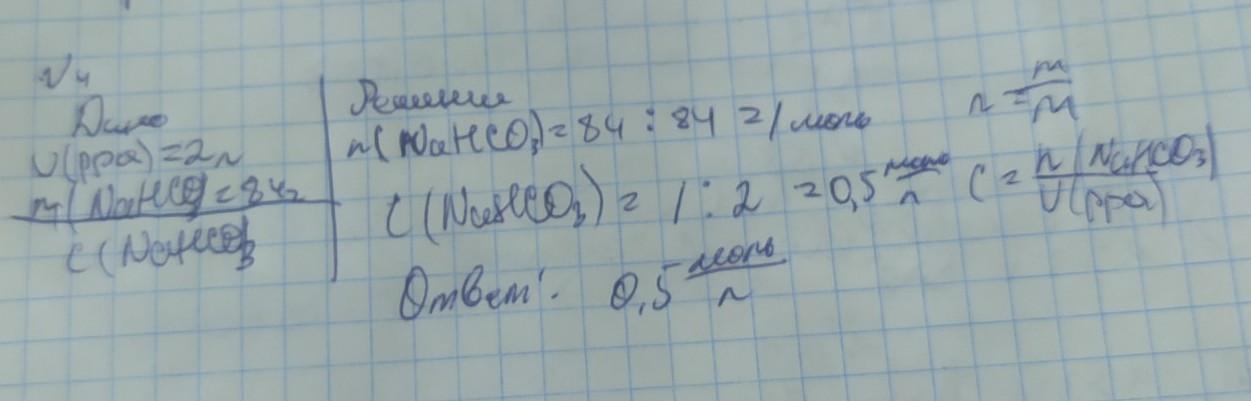 №4
Дано
V(рра)=2л
m(NaHCO3)=84г
C(NaHCO3
Решение
n(NaHCO3)=84:84=1моль
n=m/M
C(NaHCO3)=1:2=0,5 моль/л
C=n(NaHCO3)/V(рра)
Ответ: 0,5 моль/л